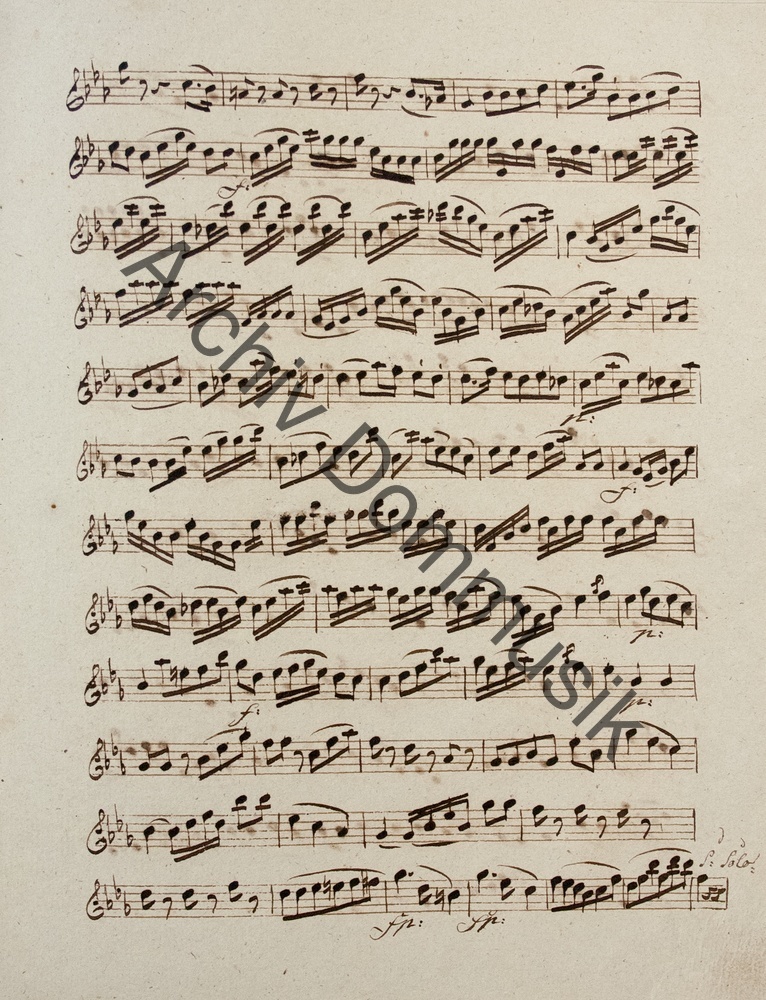 f:
Archiv Dommusik
p:
f:
p:
f:
p:
S: Solo:
fp: fp: